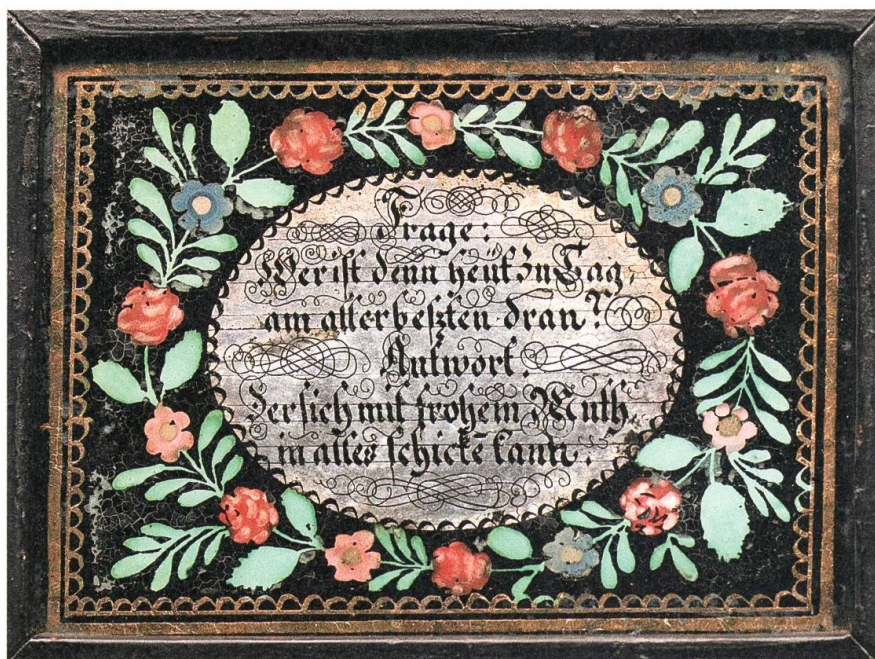 Frage:
Wer ist denn heüt zu Tag,
am allerbeßten dran?
Antwort.
Der sich mit frohem Muth,
in alles schickē kann.